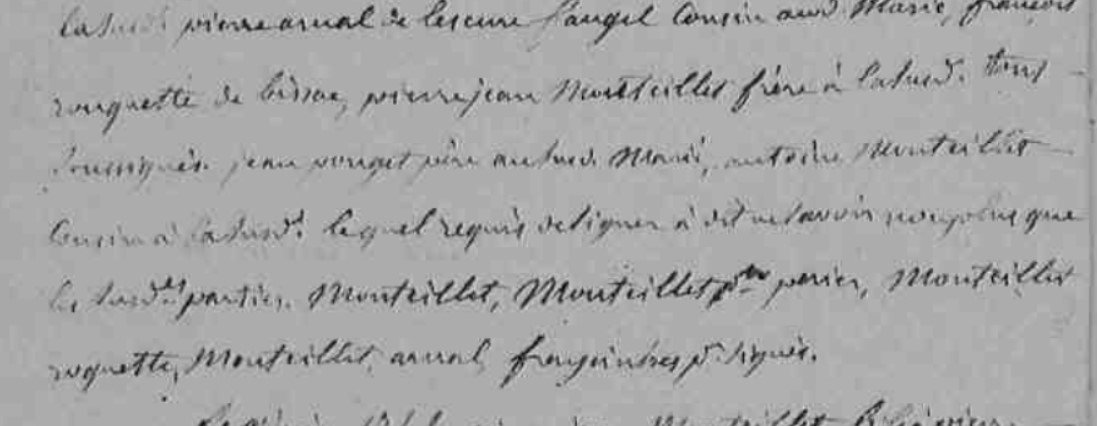 lasusd. pierre arnal de lescure fangel Cousin aud Marié, françois
rouquette de bidsac, pierre jean Monteillet frère à lasusd. tous
soussignés. jean pouget père audusd. Marié, antoine Monteillet
Cousin à lasusd. lequel requis de signer à dit ne savoir non plus que
les susd.es parties. Monteillet, Monteillet perier, Monteillet
roquette, Monteillet, arnal, signés.
Monteillet